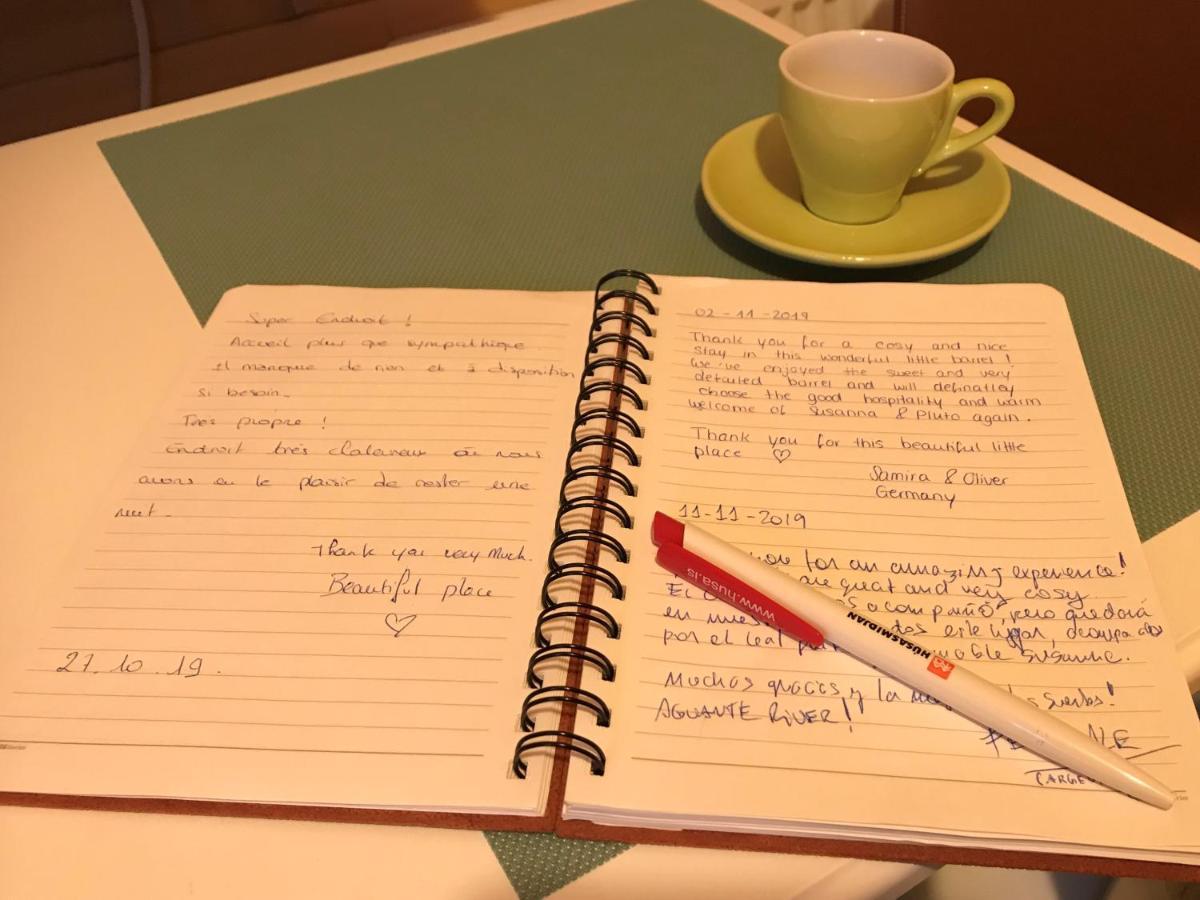 Super Endroit !
Accueil plus que sympathique
il manque de rien et à disposition
si besoin.
Très propre !
Endroit très chaleureux où nous
avons eu le plaisir de rester une
nuit.
Thank you very much.
Beautiful place
♡
27.10.19.
02-11-2019
Thank you for a cosy and nice
stay in this wonderful little barrel!
We've enjoyed the sweet and very
detailed barrel and will definatley
choose the good hospitality and warm
welcome of Susanna & Pluto again.
Thank you for this beautiful little
place ♡
Samira & Oliver
Germany
11-11-2019
you for an amazing experience!
are great and very cosy
El acompañó, pero quedará
en este lugar,
por el leal Susanne.
Muchas gracias y la suerte!
AGUANTE RIVER!!
www.husa.is
HÚSASMIÐJAN